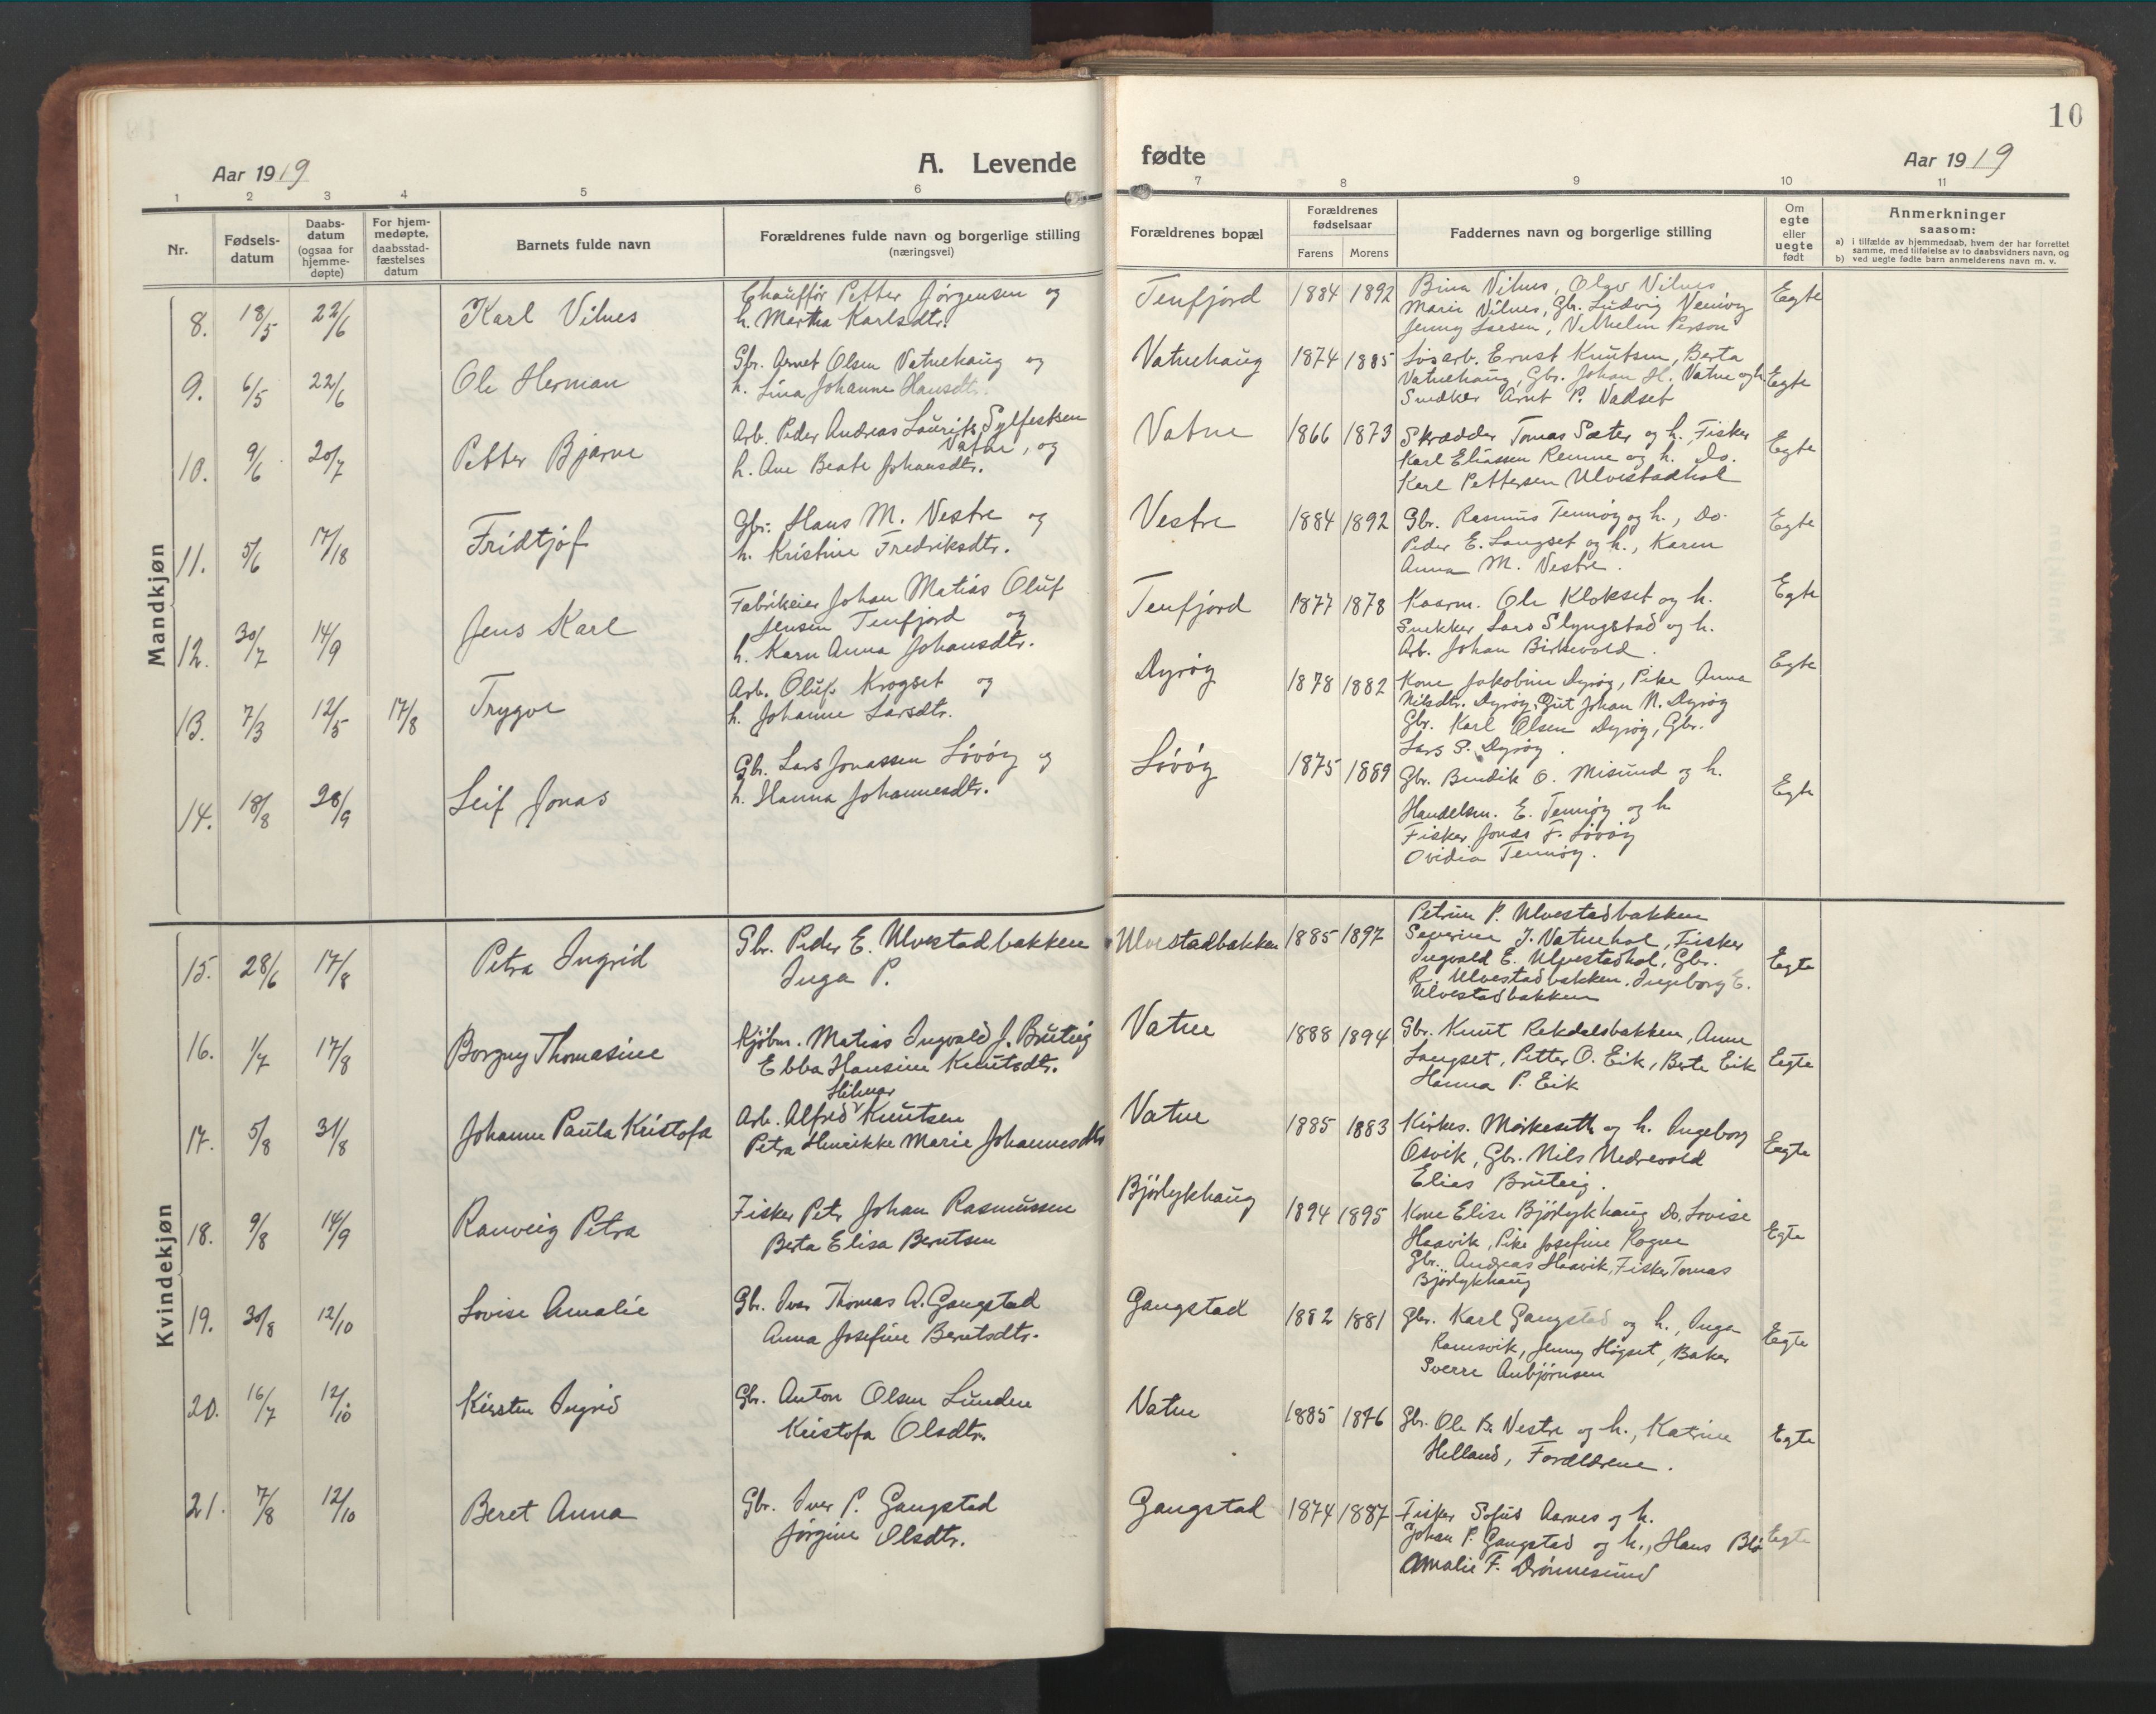 10
Aar 1919
A. Levende fødte
Aar 1919
1 2 3 4 5 6 7 8 9 10 11
Nr.
Fødsels-
datum
Daabs-
datum
(ogsaa for
hjemme-
døpte)
For hjem-
medøpte,
daabsstad-
fæstelses
datum
Barnets fulde navn
Forældrenes fulde navn og borgerlige stilling
(næringsvei)
Forældrenes bopæl
Forældrenes
fødselsaar
Farens Morens
Faddernes navn og borgerlige stilling
Om
egte
eller
uegte
født
Anmerkninger
saasom:
a) i tilfælde av hjemmedaab, hvem der har forrettet
samme, med tilføielse av to daabsvidners navn, og
b) ved uegte fødte barn anmelderens navn m. v.
Mandkjøn
8. 18/5 22/6 Karl Vilnes
Chauffør Petter Jørgensen og
h. Martha Karlsdtr.
Tenfjord 1884 1892
Bina Vilnes, Olav Vilnes
Marie Vilnes, Gbr. Ludvig Vennøy
Jenny Larsen, Vilhelm Person
Egte
9. 6/5 22/6 Ole Herman
Gbr. Arnet Olsen Vatnehaug og
h. Lina Johanne Hansdtr.
Vatnehaug 1874 1885
Løsarb. Ernst Knutsen, Berta
Vatnehaug, Gbr. Johan H. Vatne og h.
Snedker Arnt P. Vadset
Egte
10. 9/6 20/7 Petter Bjarne
Arb. Peder Andreas Laurits Sylfestsen
Vatne, og
h. Ane Beate Johansdtr.
Vatne 1866 1873
Skrædder Tomas Sæter og h. Fisker
Karl Eliassen Remme og h. Do.
Karl Pettersen Ulvestadhol
Egte
11. 5/6 17/18 Fridtjof
Gbr. Hans M. Vestre og
h. Kristine Fredriksdtr.
Vestre 1884 1892
Gbr. Rasmus Tennøy og h., Do.
Peder E. Langset og h., Karen
Anna M. Vestre.
Egte
12. 30/7 14/9 Jens Karl
Fabrikeier Johan Matias Oluf
Jensen Tenfjord og
h. Karn Anna Johansdtr.
Tenfjord 1877 1878
Kaarm. Ole Klokset og h.
Snekker Lars Slyngstad og h.
Arb. Johan Birkevold.
Egte
13. 7/3 12/5 17/8 Trygve
Arb. Oluf Krogset og
h. Johanne Larsdtr.
Dyrøy 1878 1882
Kone Jakobine Dyrøy, Pike Anna
Nilsdtr. Dyrøy, Gut Johan N. Dyrøy
Gbr. Karl Olsen Dyrøy, Gbr.
Lars P. Dyrøy.
Egte
14. 18/8 28/9 Leif Jonas
Gbr. Lars Jonassen Løvøy og
h. Hanna Johannesdtr.
Løvøy 1875 1889
Gbr. Bendik O. Misund og h.
Handelsm. E. Tennøy og h
Fisker Jonas F. Løvøy
Ovidia Tennøy.
Egte
Kvindekjøn
15. 28/6 17/8 Petra Ingrid
Gbr. Peder E. Ulvestadbakken
Inga P.
Ulvestadbakken 1885 1897
Petrine P. Ulvestadbakken
Severine J. Vatnehol, Fisker
Ingvald E. Ulvestadhol, Gbr.
R. Ulvestadbakken. Ingeborg E.
Ulvestadbakken
Egte
16. 1/7 17/8 Borgny Thomasine
Kjøbm. Matias Ingvald J. Bruteig
Ebba Hansine Knutsdtr.
Vatne 1888 1894
Gbr. Knut Rekdalsbakken, Anne
Langset, Petter O. Eik, Berte Eik
Hanna P. Eik
Egte
17. 5/8 31/8 Johanne Paula Kristofa
Hilmar
Arb. Alfred Knutsen
Petra Henrikke Marie Johannesdtr
Vatne 1885 1883
Kirkes. Mørkeseth og h. Ingeborg
Osvik, Gbr. Nils Nedrevold
Elias Bruteig.
Egte
18. 9/8 14/9 Ranveig Petra
Fisker Petr Johan Rasmussen
Berta Elisa Berntsen
Bjørlykhaug 1894 1895
Kone Elise Bjørlykhaug Do. Lovise
Haavik, Pike Josefine Rogne
Gbr. Andreas Haavik, Fisker Tomas
Bjørlykhaug
Egte
19. 30/8 12/10 Lovise Amalie
Gbr. Ivar Thomas A. Gangstad
Anna Josefine Berntsdtr.
Gangstad 1882 1881
Gbr. Karl Gangstad og h., Inga
Ramsvik, Jenny Høgset, Baker
Sverre Anbjørnsen
Egte
20. 16/7 12/10 Kirsten Ingrid
Gbr. Anton Olsen Lunden
Kristofa Olsdtr.
Vatne 1885 1876
Gbr. Ole B. Vestre og h., Katrine
Helland, Forældrene.
Egte
21. 7/8 12/10 Beret Anna
Gbr. Iver P. Gangstad
Jørgine Olsdtr.
Gangstad 1874 1887
Fisker Sofus Aarnes og h.
Johan P. Gangstad og h., Hans Blø
Amalie F. Drønnesund
Egte